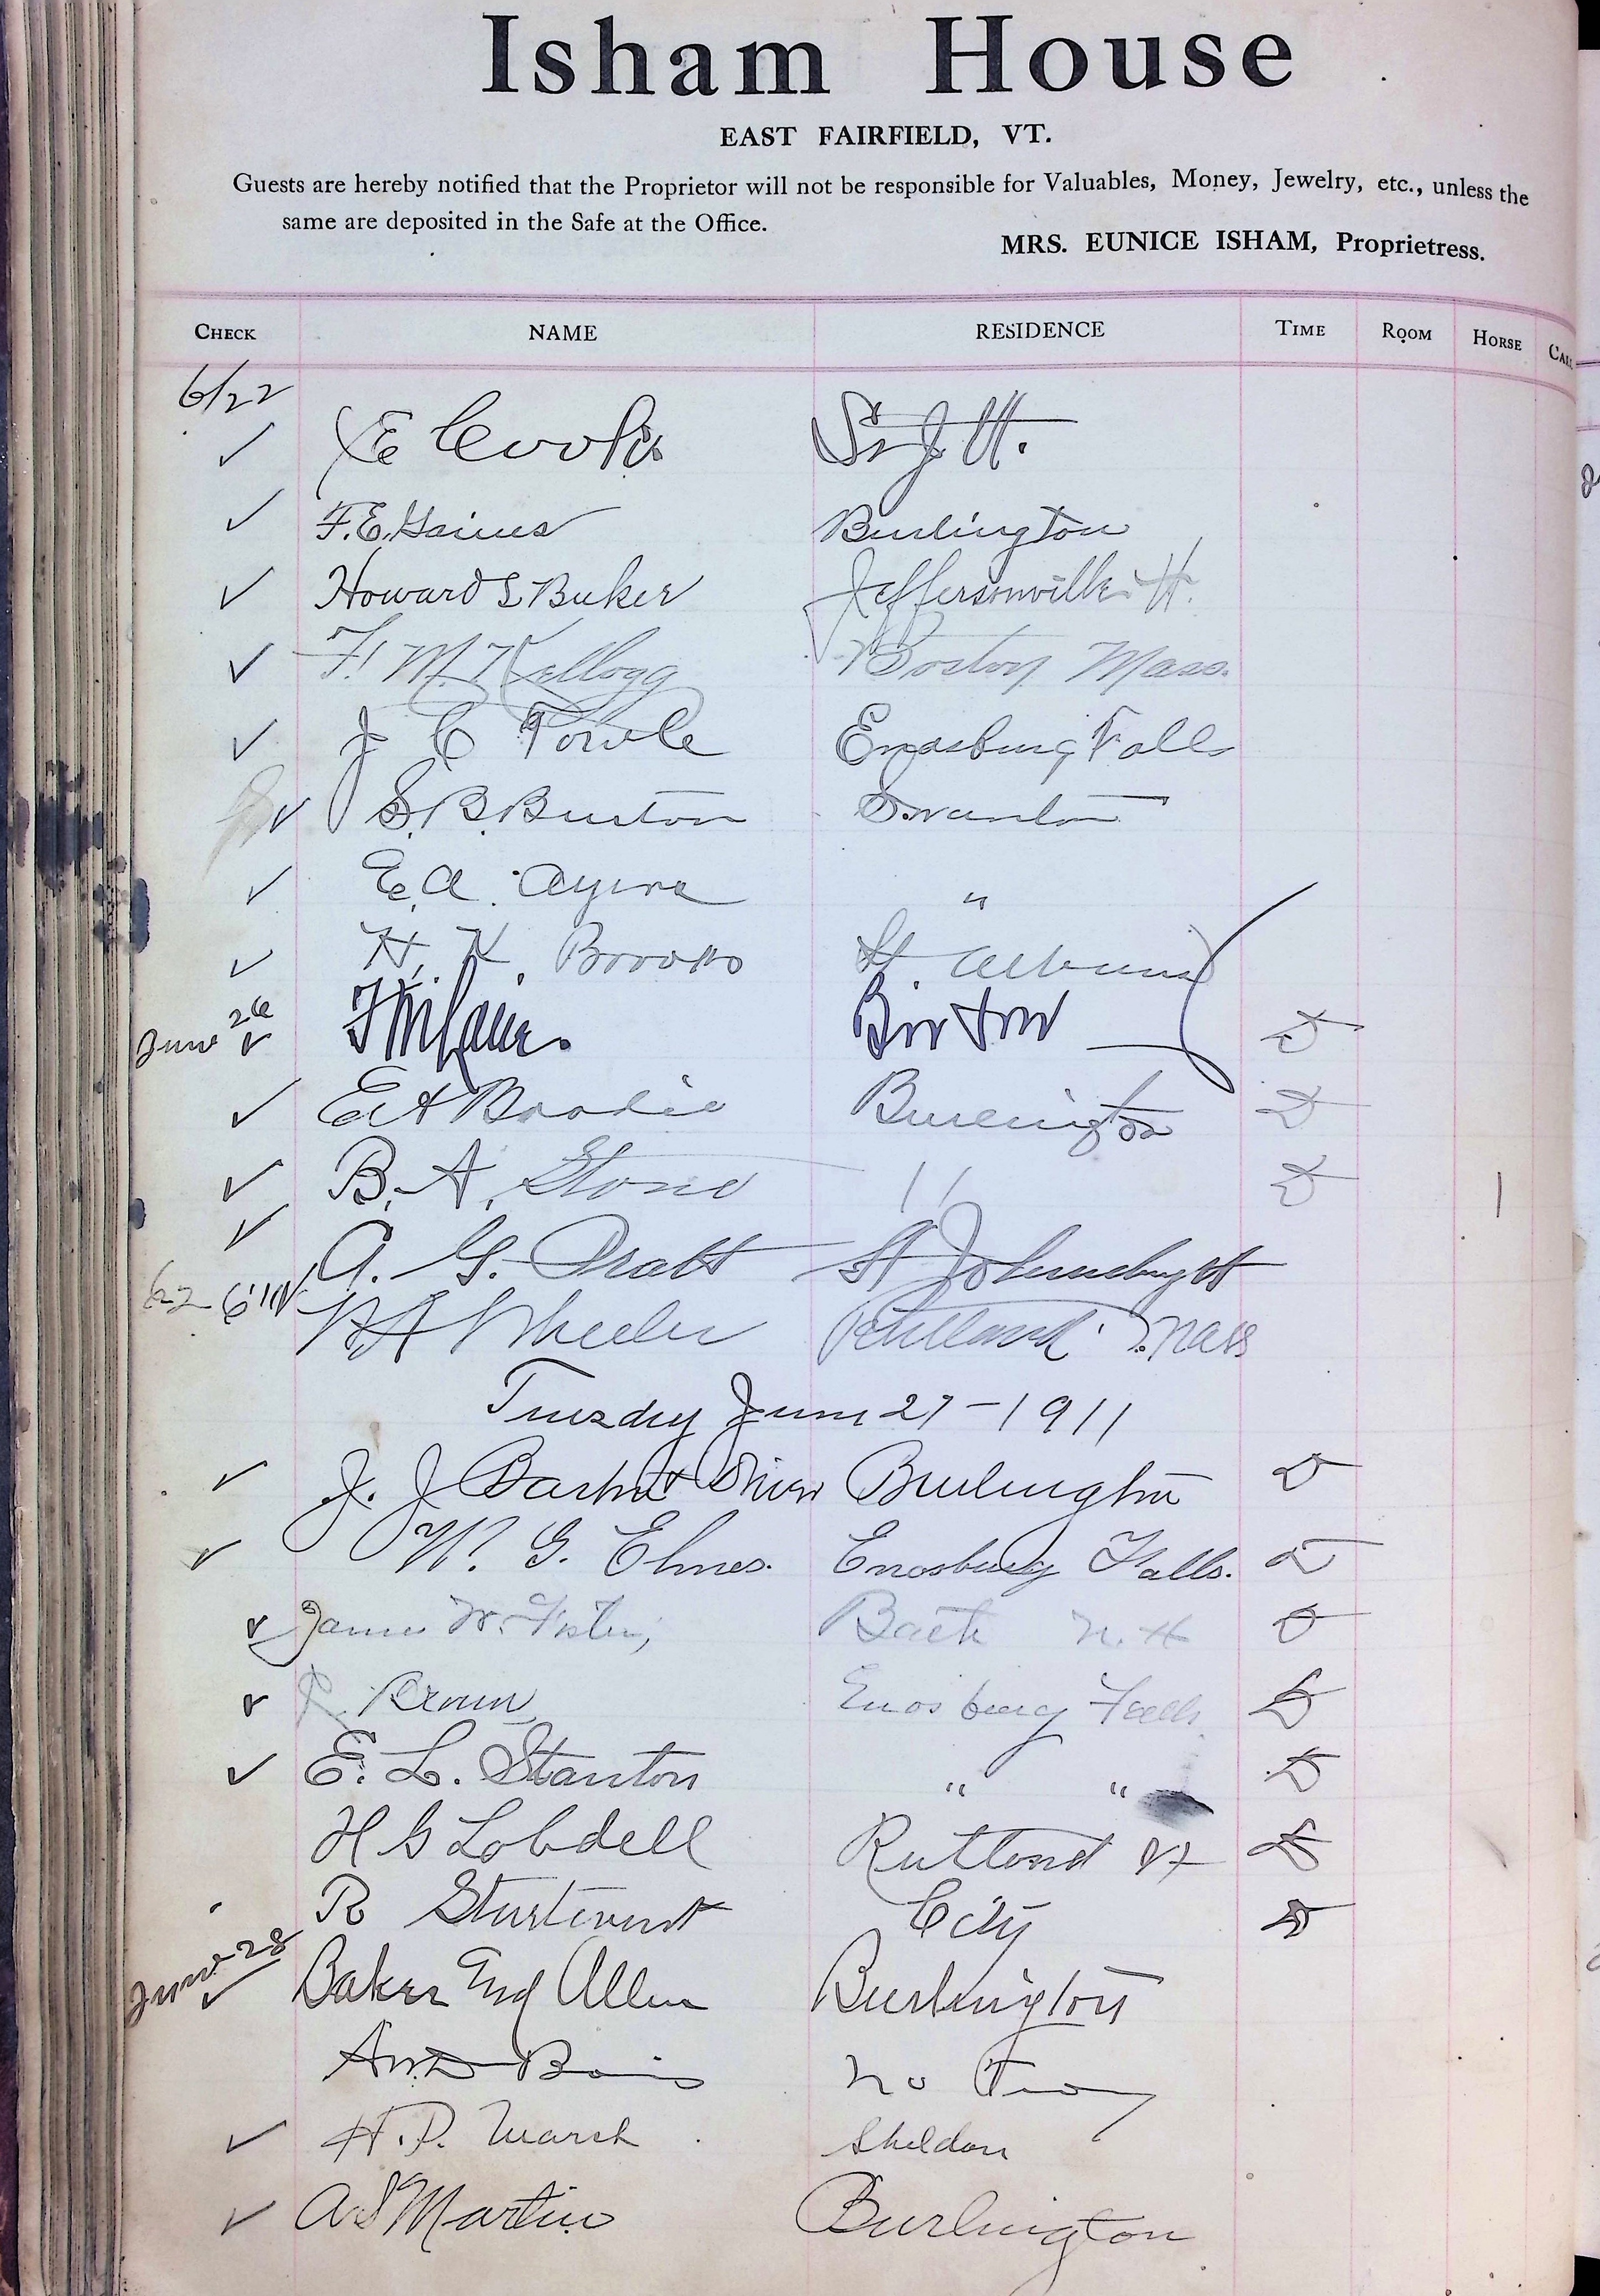 Isham House
EAST FAIRFIELD, VT.
Guests are hereby notified that the Proprietor will not be responsible for Valuables, Money, Jewelry, etc., unless the
same are deposited in the Safe at the Office.
MRS. EUNICE ISHAM, Proprietress.
CHECK NAME RESIDENCE TIME ROOM HORSE CALL
6/22
✓ E Cook St J. Vt.
✓ F. E. Gaines Burlington
✓ Howard S Buker Jeffersonville Vt.
✓ F. M. Kellogg Boston Mass.
✓ J C Towle Enosburg Falls
✓ S. B. Burton Swanton
✓ E. A. Ayers "
✓ H. K. Brooks St. Albans
June 26 ✓ Boston D
✓ Burlington D
✓ B. A. Stone " D |
✓ A. G. Pratt St Johnsbury Vt
Wheeler Rutland Mass
Tuesday June 27-1911
✓ J. J. Burlington D
✓ W. G. Elmes. Enosburg Falls. D
✓ James W. Bath N. H D
✓ Brown Enosburg Falls D
✓ E. L. Stanton " " D
H G Lobdell Rutland Vt D
R Sturtevant City D
June 28 ✓ Baker and Allen Burlington
No Troy
✓ H. P. Marsh Sheldon
✓ A S Martin Burlington